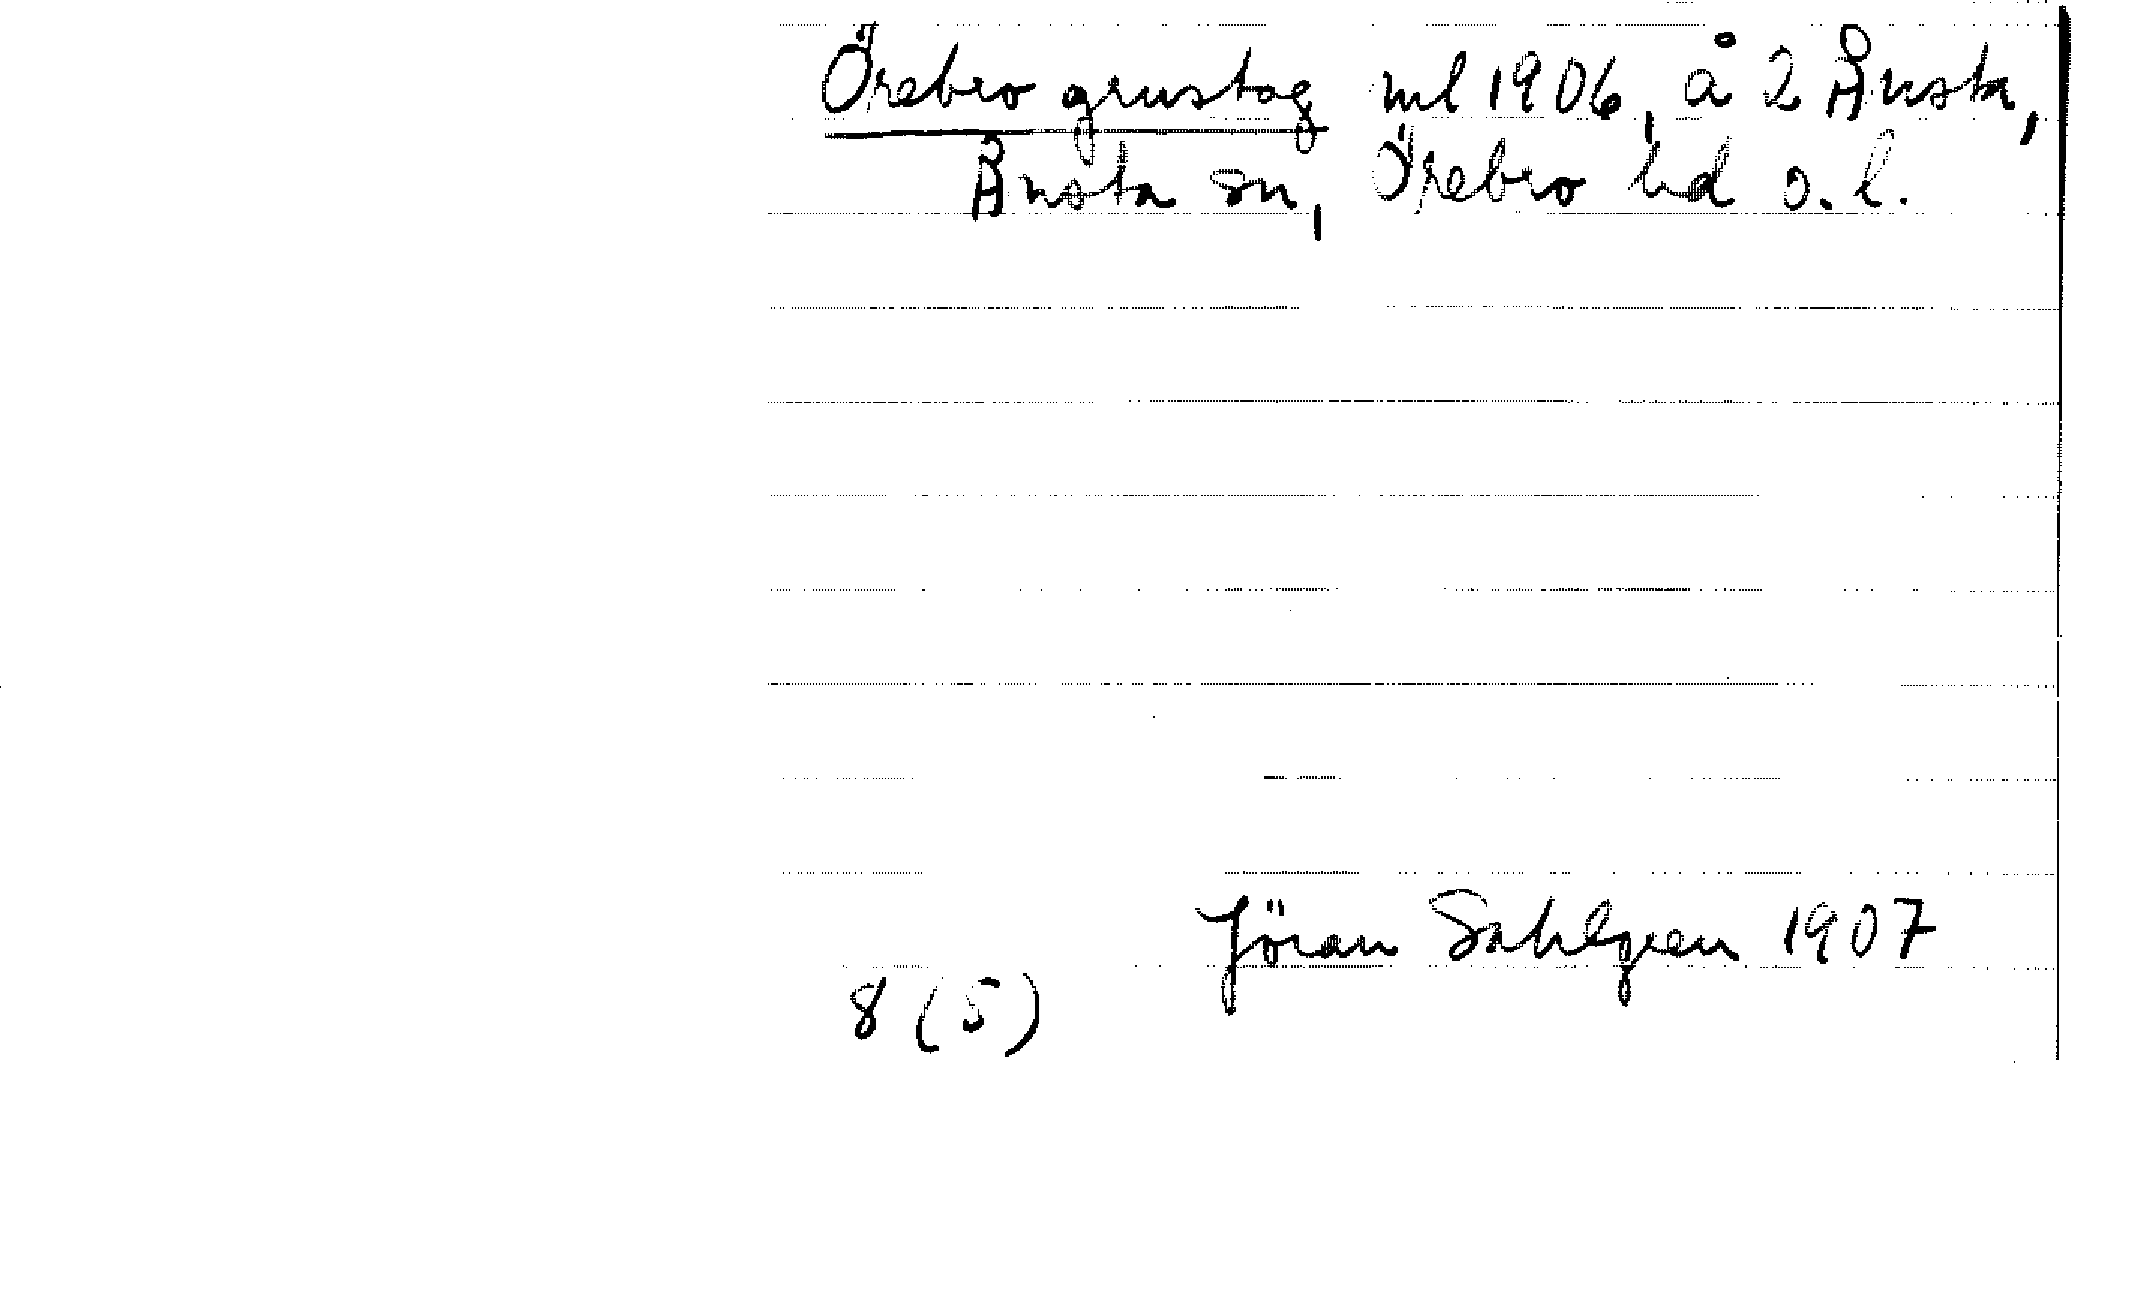 Örebro grustag ml 1906, å 2 Ånsta,
Ånsta sn, Örebro hd o. l.
Jöran Sahlgren 1907
8 (5)